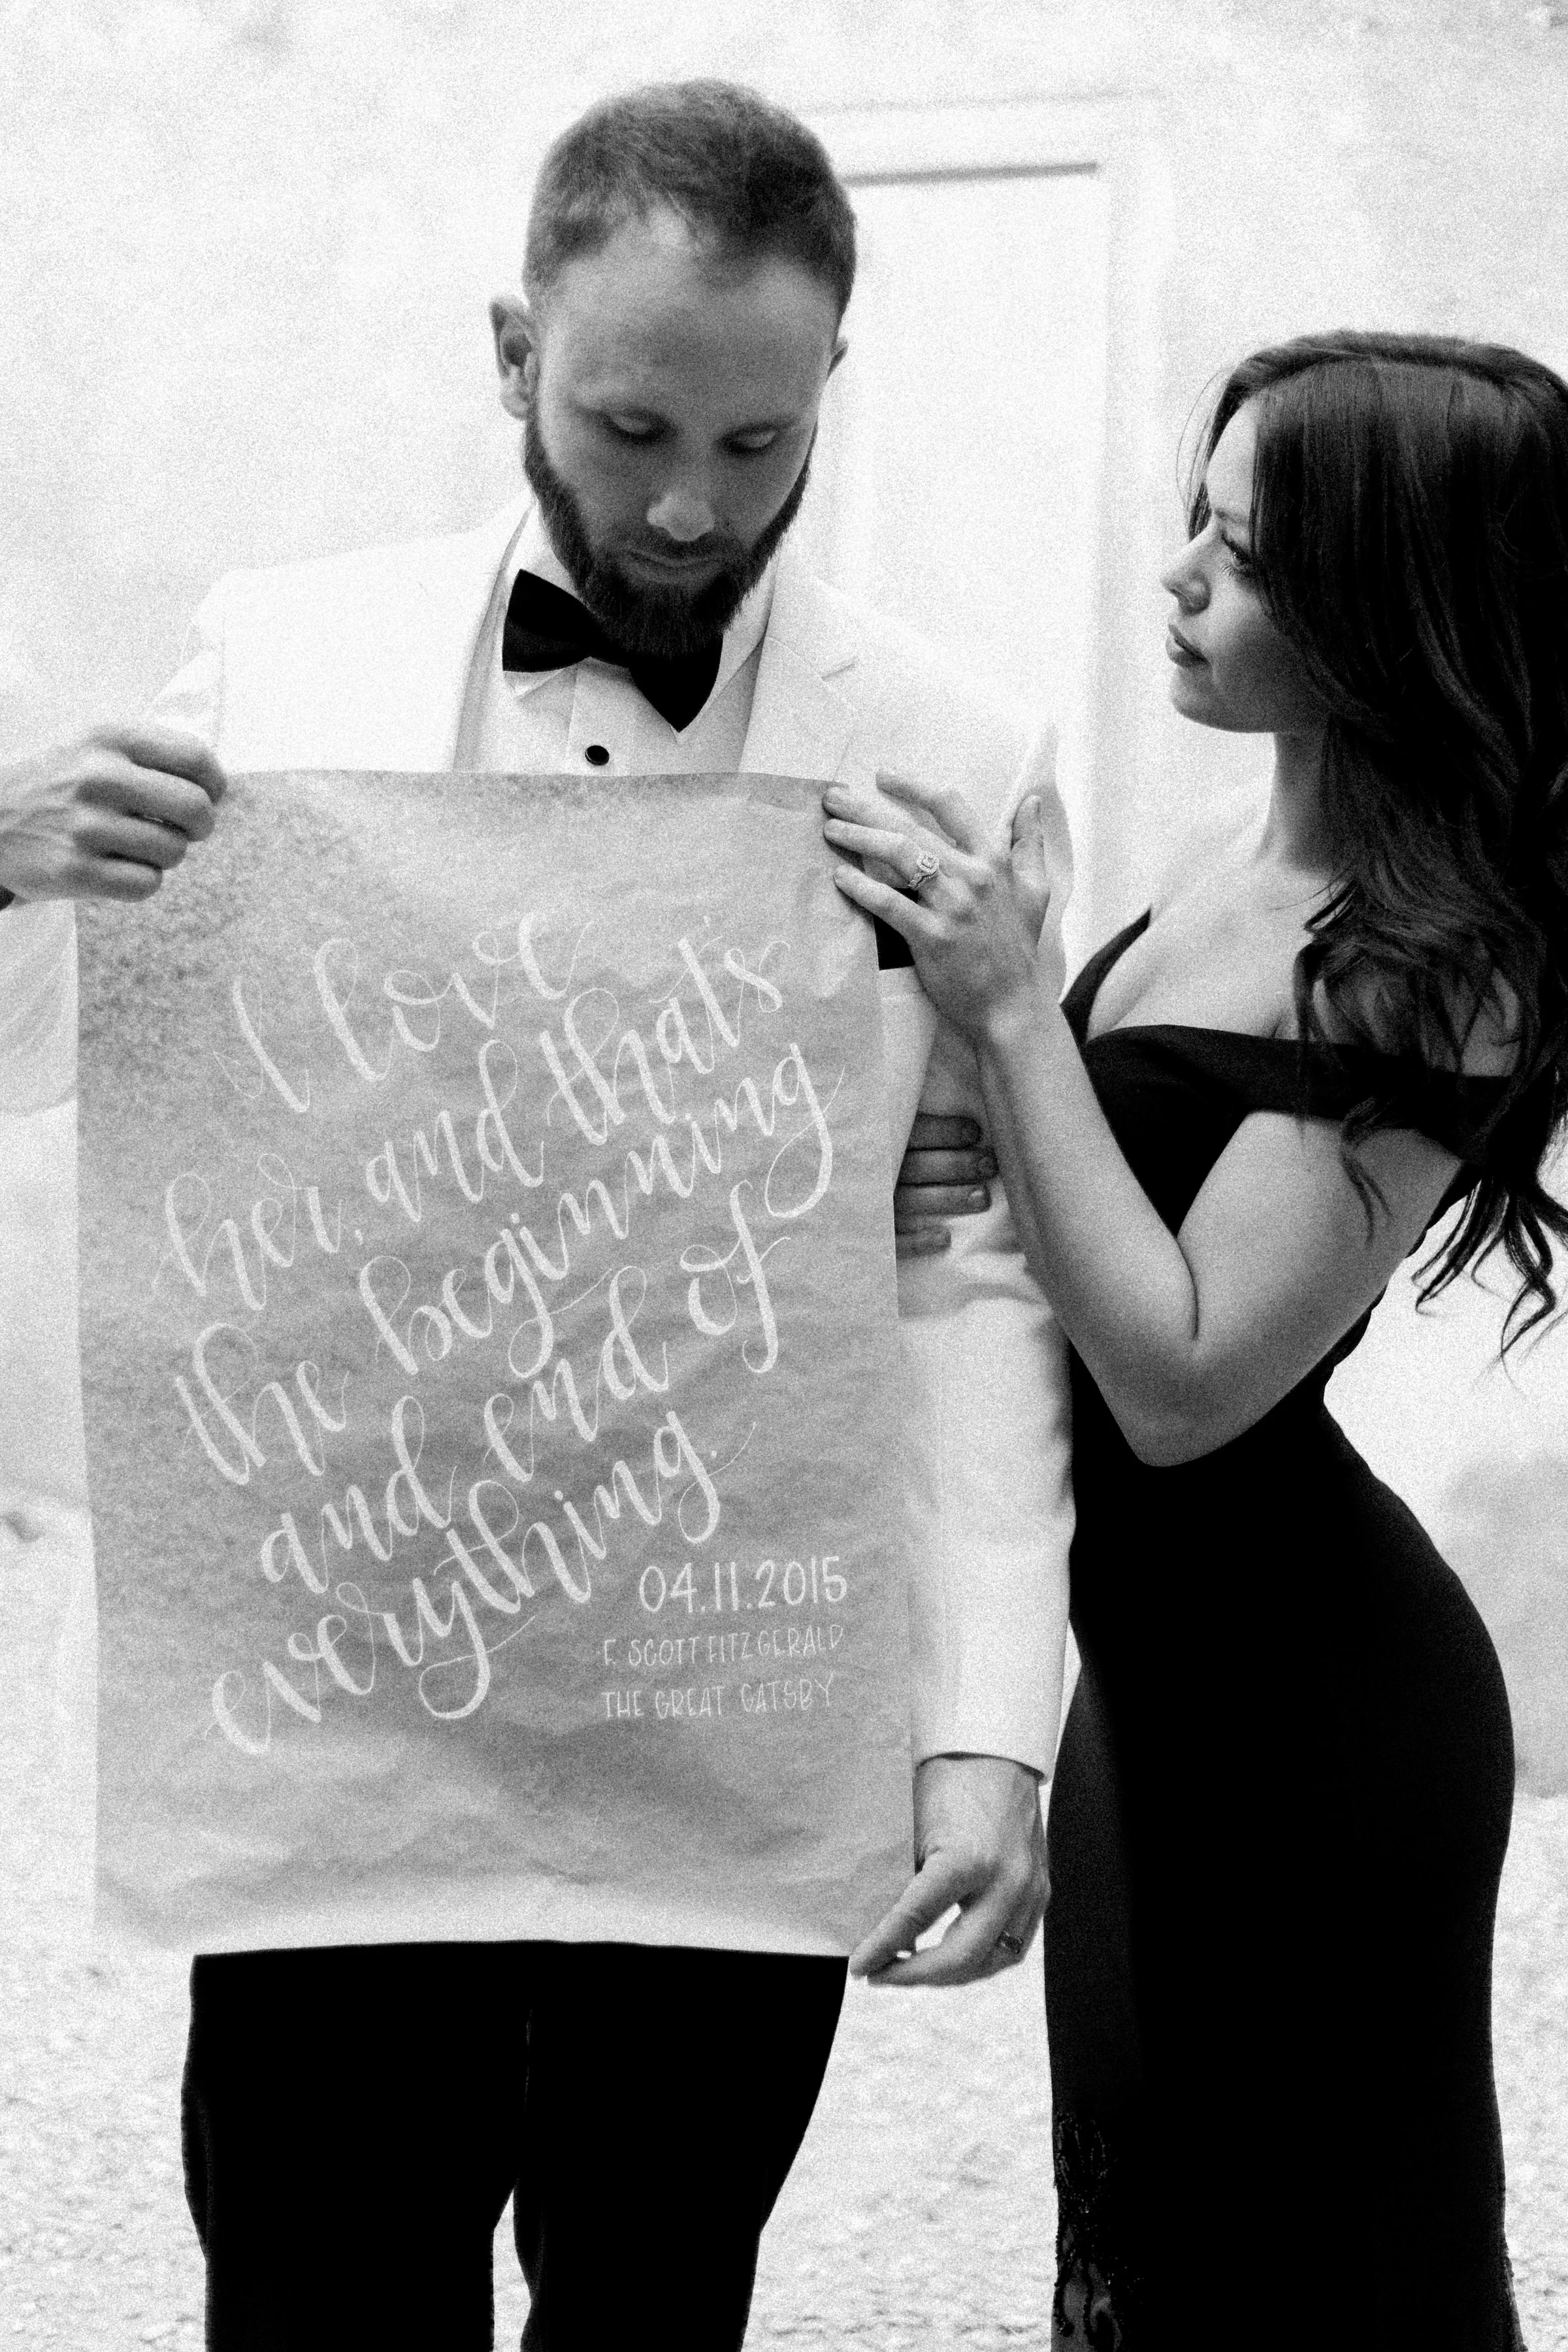 I love
her, and that's
the beginning
and end of
everything.
04.11.2015
F. SCOTT FITZGERALD
THE GREAT GATSBY